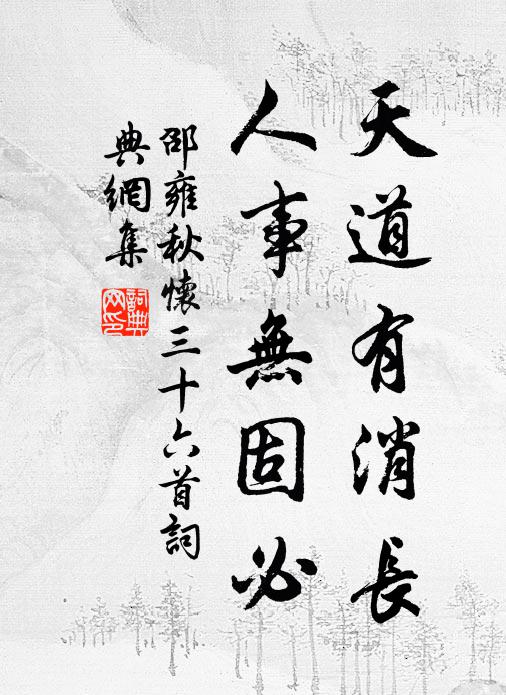 天道有消長
人事無固必
邵雍秋懷三十六首詞
典網集
詞典網印